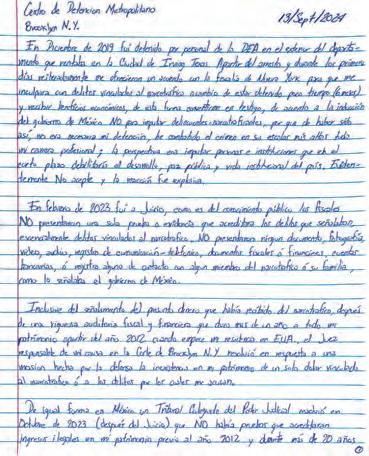 Centro de Detencion Metropolitano
Brooklyn N.Y.
13/Sept/2024
En Diciembre de 2019 fui detenido por personal de la DEA en el exterior del departa-
mento que rentaba en la Ciudad de Irving Texas. Apartir del arresto y durante los primeros
días reiteradamente me ofrecieron un acuerdo con la fiscalía de Nueva York para que me
inculpara con delitos vinculados al narcotráfico acambio de estar detenido poco tiempo (6 meses)
y recibir beneficios económicos, de esta forma convertirme en testigo, de acuerdo a la
del gobierno de México. NO para imputar delincuentes-narcotraficantes, por que de haber sido
así, no era necesaria mi detención, he combatido el crimen en su escalas más altas toda
mi carrera profesional; la perspectiva era imputar personas e instituciones que en el
corto plazo debilitaría el desarrollo, paz pública y vida institucional del país. Eviden-
temente No acepte y la reacción fue explosiva.
En febrero de 2023 fui a Juicio, como es del conocimiento público los fiscales
NO presentaron una sola prueba o evidencia que acreditara los delitos que señalaban,
esencialmente delitos vinculados al narcotrafico. NO presentaron ningun documento, fotografía,
video, audio, registro de comunicación-telefónica, documentos fiscales ó financieros, cuentas
bancarias, ó registro alguno de contacto con algun miembro del narcotrafico ó su familia,
como lo señalaba el gobierno de México.
Inclusive del señalamiento del presunto dinero que había recibido del narcotrafico, después
de una rigurosa auditoria fiscal y financiera que duro mas de un año a todo mi
patrimonio apartir del año 2012 cuando empece mi residencia en EUA. el Juez
responsable de mi causa en la Corte de Brooklyn N.Y. resolvió en respuesta a una
mocion hecha por la defensa la inexistencia en mi patrimonio de un solo dolar vinculado
al narcotrafico ó a los delitos por los cuales me acusan.
De igual forma en México un Tribunal Colegiado del Poder Judicial resolvió en
Octubre de 2023 (después del Juicio) que NO había pruebas que acreditaran
ingresos ilegales en mi patrimonio previo al año 2012 y durante más de 20 años
①